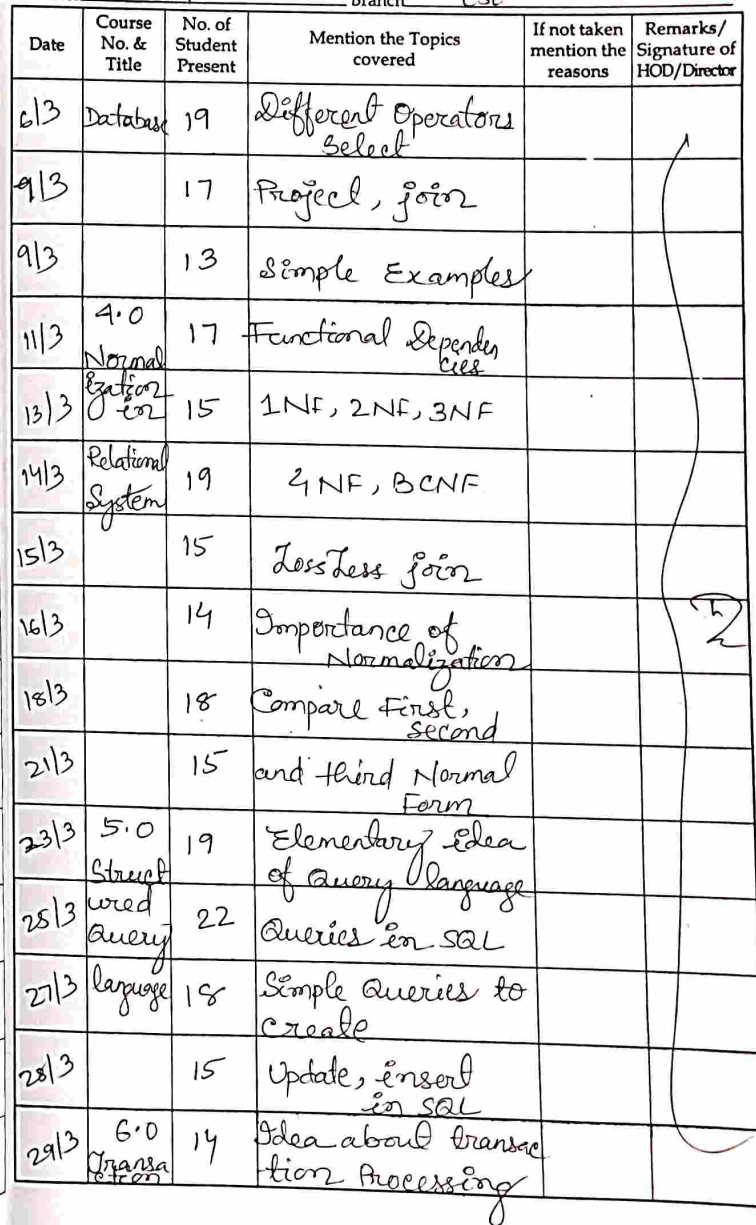 Branch CSE
Date Course No. & Title No. of Student Present Mention the Topics covered If not taken mention the reasons Remarks/ Signature of HOD/Director
6/3 Database 19 Different Operators
Select
9/3 17 Project, join
9/3 13 Simple Examples
11/3 4.0 Normal 17 Functional Dependen
cies
13/3 ization in 15 1NF, 2NF, 3NF
14/3 Relational System 19 4NF, BCNF
15/3 15 LossLess join
16/3 14 Importance of
Normalization
18/3 18 Compare First,
second
21/3 15 and third Normal
Form
23/3 5.0 Struct 19 Elementary idea
of Query language
25/3 ured Query 22 Queries in SQL
27/3 language 18 Simple Queries to
create
28/3 15 Update, insert
in SQL
29/3 6.0 Transa ction 14 Idea about transac
tion Processing